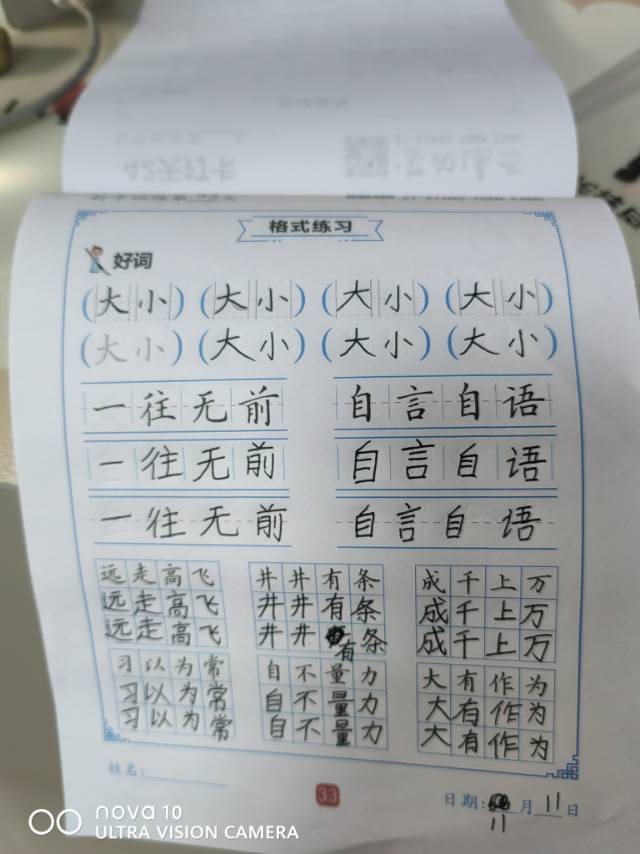 42天打卡
格式练习
好词
(大小) (大小) (大小) (大小)
(大小) (大小) (大小) (大小)
一往无前 自言自语
一往无前 自言自语
一往无前 自言自语
远走高飞 井井有条 成千上万
远走高飞 井井有条 成千上万
远走高飞 井井有条 成千上万
习以为常 自不量力 大有作为
习以为常 自不量力 大有作为
习以为常 自不量力 大有作为
姓名:
33
日期: 11月11日
nova 10
ULTRA VISION CAMERA